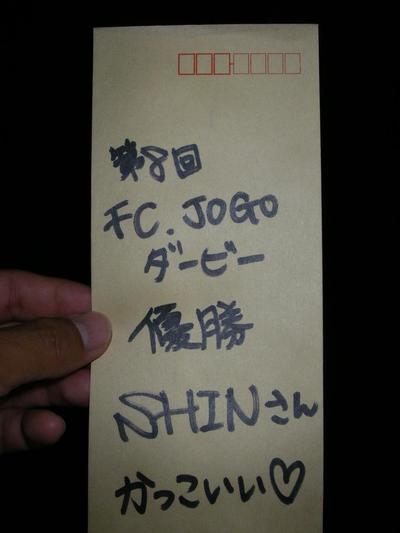 第8回
FC.JOGO
ダービー
優勝
SHINさん
かっこいい♡